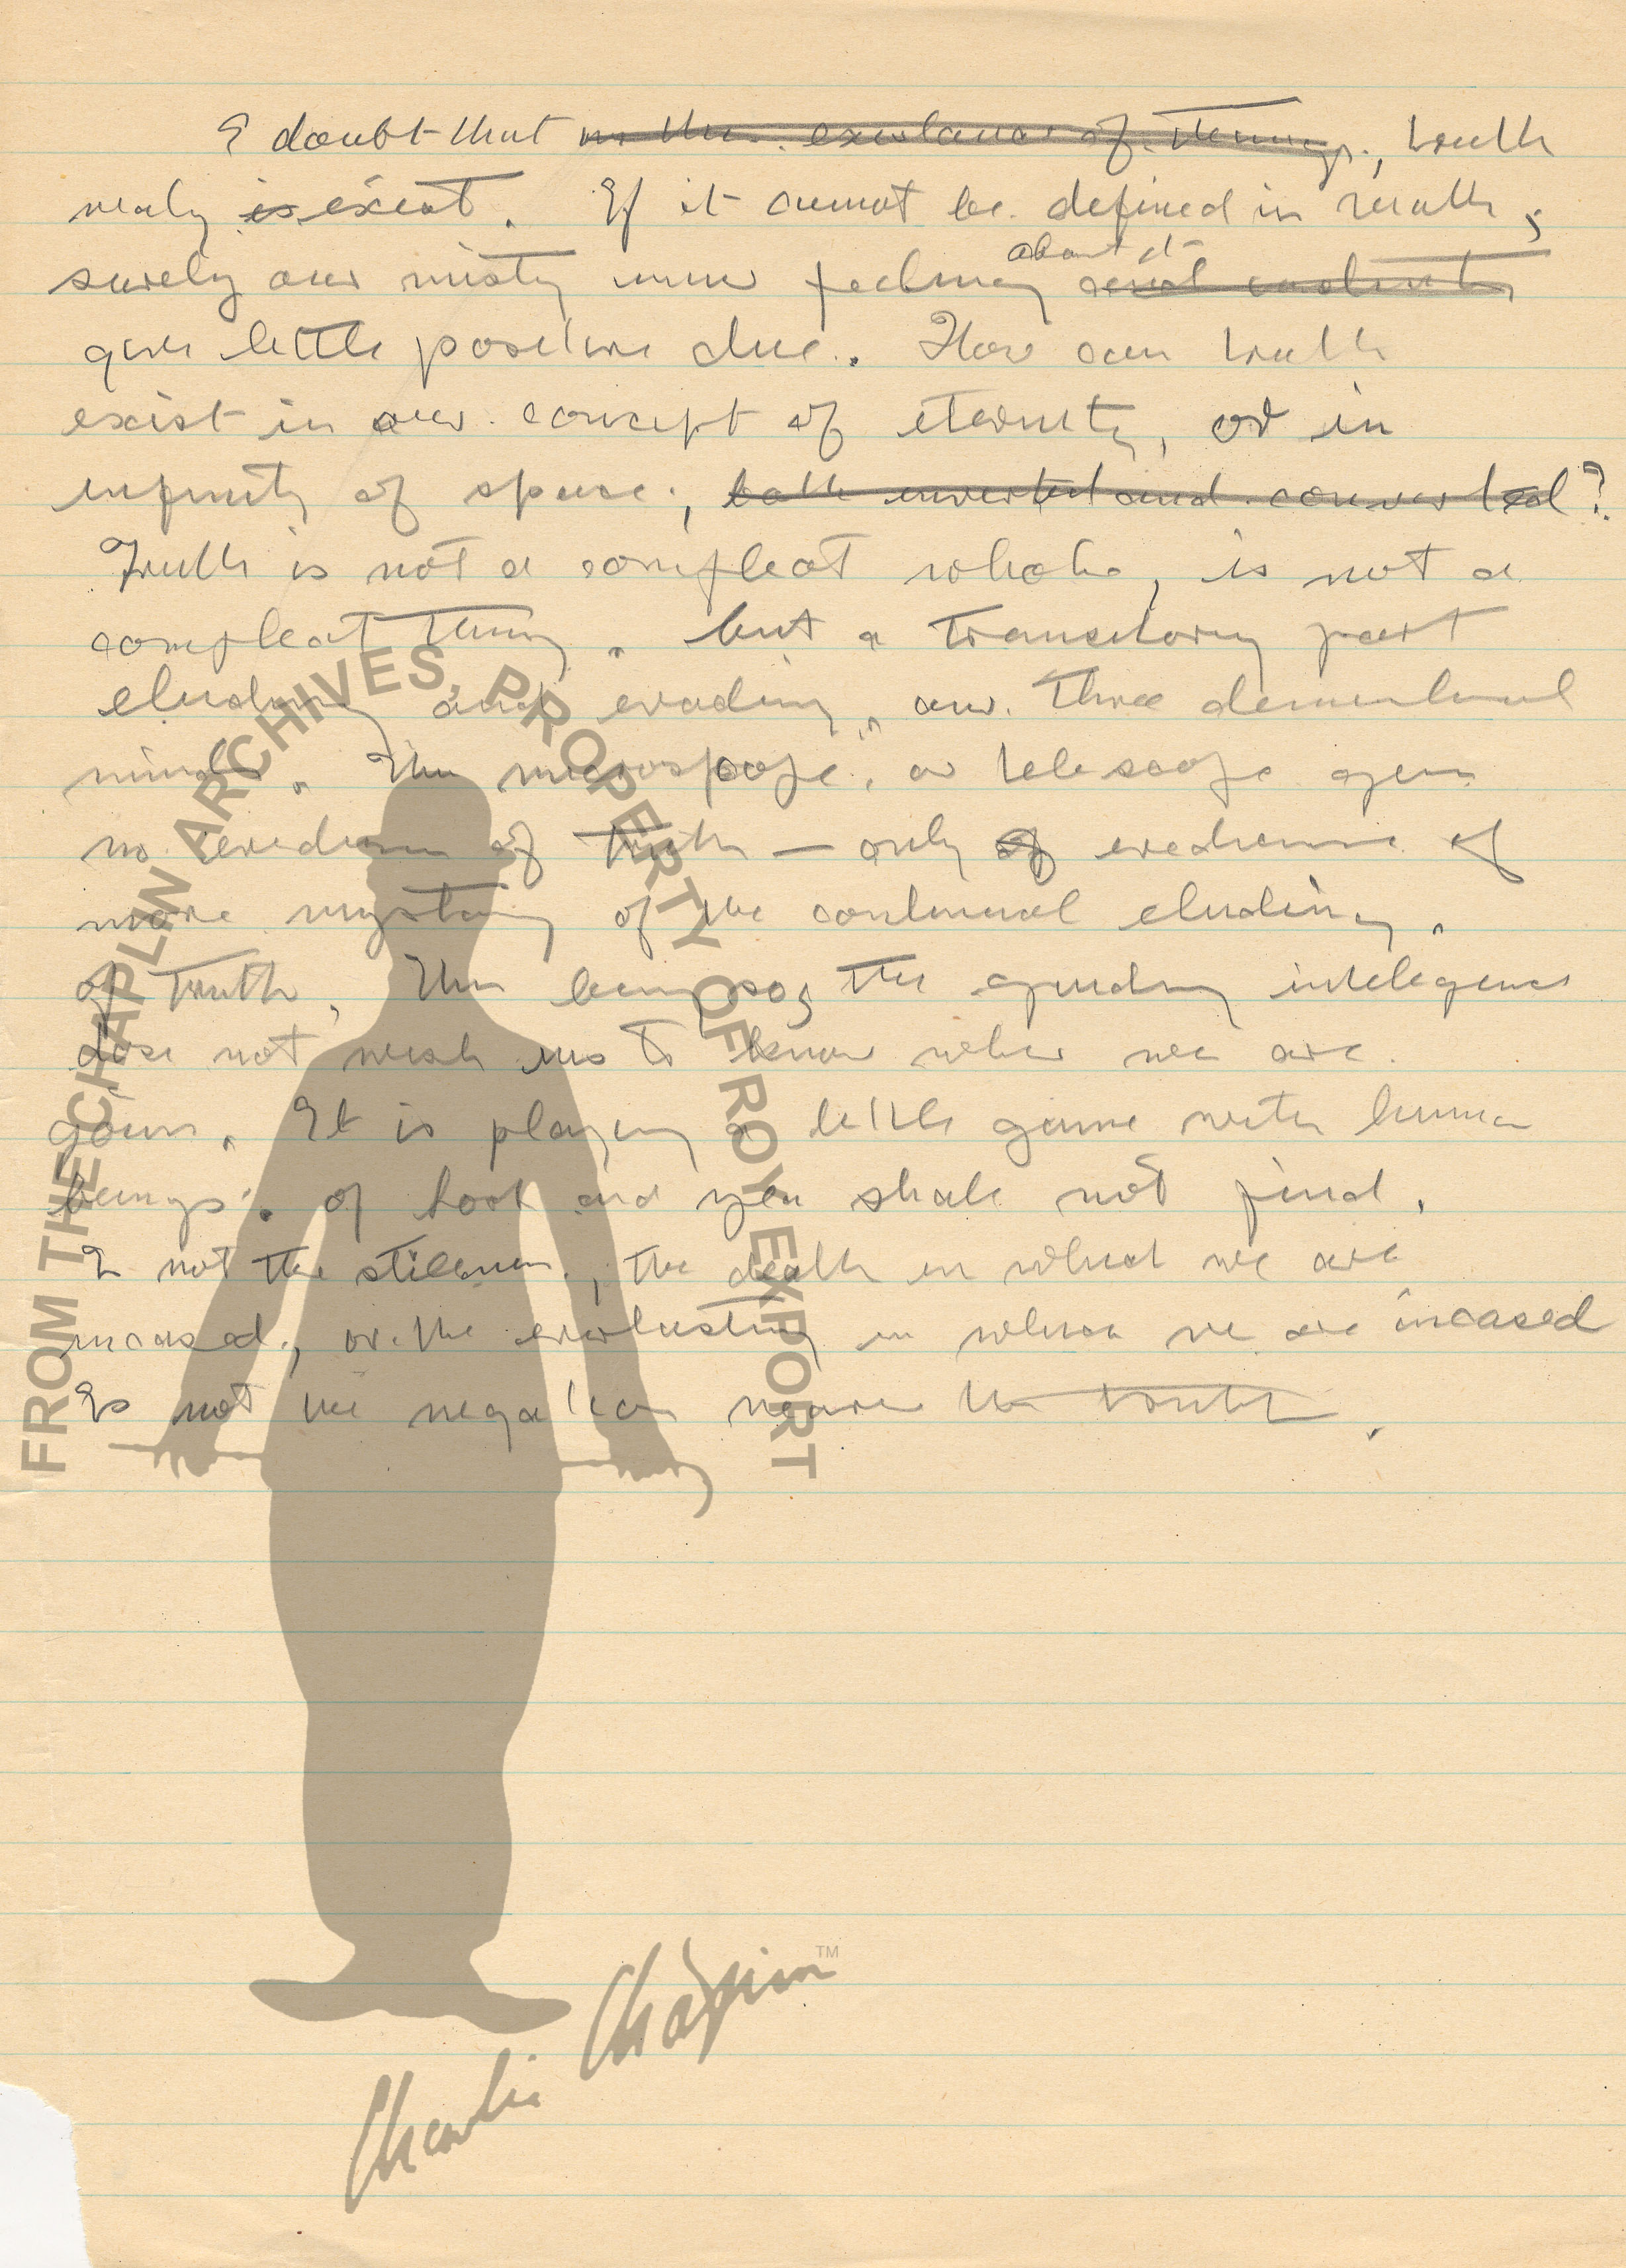 I doubt that in the existance of things, truth
realy is exist. If it cannot be defined in math,
about it
surely our misty inner feeling
give little positive clue. How can truth
exist in our concept of eternity, or in
infinity of space, both inverted and converted?
Truth is not a compleat whole, is not a
compleat thing. but a transitory part
eluding and evading, our three dementional
minds. The microscope, or telescope gives
no evidence of truth — only of evedence of
more mystery of the continual eluding,
of truth, This being so, the guiding intelegence
dose not wish us to know where we are
going. It is playing a little game with human
beings. of look and you shall not find.
Is not the stillness, the death in which we are
incased, or the everlasting in which we are incased
Is not the negation near the truth.
FROM THE CHAPLIN ARCHIVES, PROPERTY OF ROY EXPORT
Charlie Chaplin™